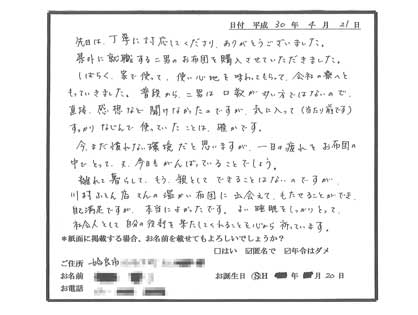 日付 平成 30 年 4 月 21 日
先日は、丁寧に対応してくださり、ありがとうございました。
県外に就職する二男のお布団を購入させていただきました。
しばらく、家で使って、使い心地を味わってもらって、会社の寮へと
もっていきました。普段から、二男は口数が多い方ではないので、
直接、感想など聞けなかったのですが、気に入って(当たり前です)
すっかりなじんで使っていたことは、確かです。
今、まだ慣れない環境だと思いますが、一日の疲れをお布団の
中でとって、又、今日もがんばっていることでしょう。
離れて暮らして、もう、親としてできることはないのですが、
川村ふとん店さんの温かい布団に出会えて、もたせることができ、
自己満足ですが、本当によかったです。よい睡眠をしっかりとって、
社会人として自分の役割を果たしてくれることを心から祈っています。
*紙面に掲載する場合、お名前を載せてもよろしいでしょうか?
□はい ☑匿名で ☑年令はダメ
ご住所 姶良市
お名前 お誕生日 S・H 年 月 20 日
お電話